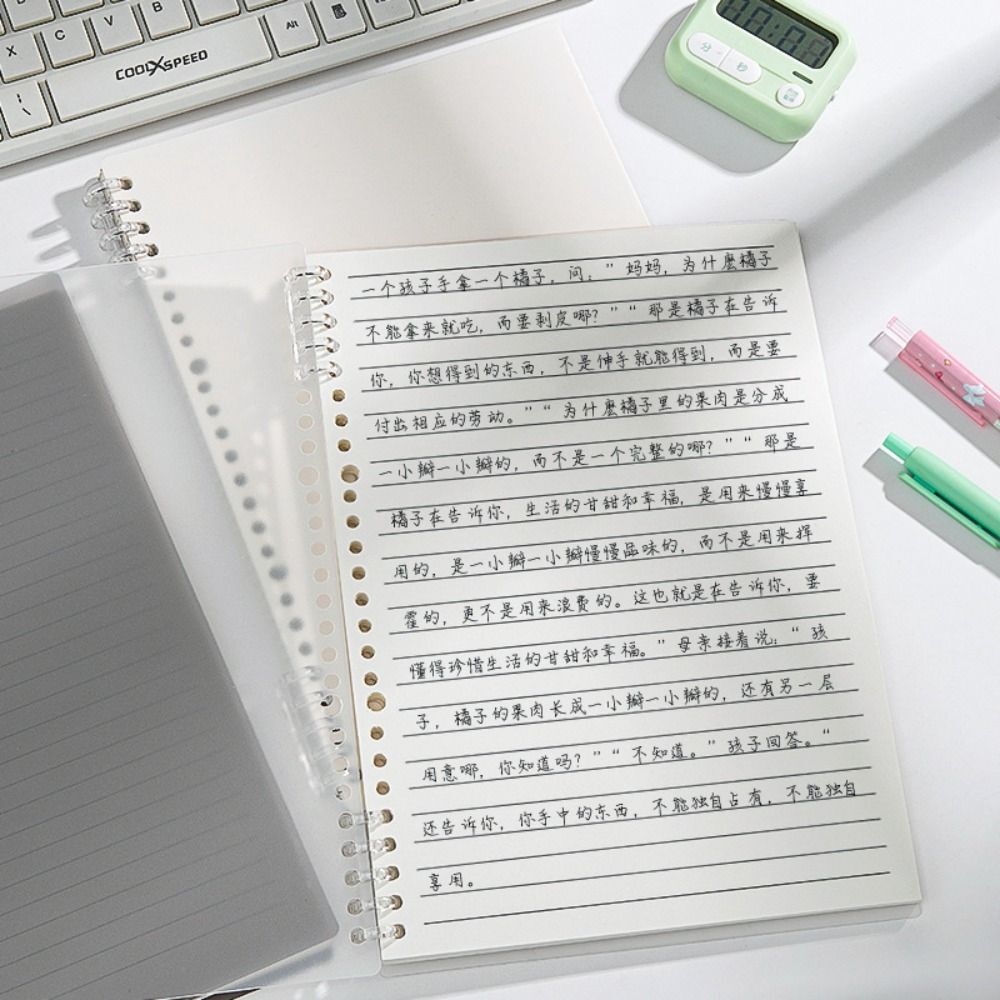 X C V B N
Alt
COOLXSPEED
分 秒
一个孩子手拿一个橘子，问："妈妈，为什麽橘子
不能拿来就吃，而要剥皮哪？""那是橘子在告诉
你，你想得到的东西，不是伸手就能得到，而是要
付出相应的劳动。""为什麽橘子里的果肉是分成
一小瓣一小瓣的，而不是一个完整的哪？""那是
橘子在告诉你，生活的甘甜和幸福，是用来慢慢享
用的，是一小瓣一小瓣慢慢品味的，而不是用来挥
霍的，更不是用来浪费的。这也就是在告诉你，要
懂得珍惜生活的甘甜和幸福。"母亲接着说："孩
子，橘子的果肉长成一小瓣一小瓣的，还有另一层
用意哪，你知道吗？""不知道。"孩子回答。"
还告诉你，你手中的东西，不能独自占有，不能独自
享用。